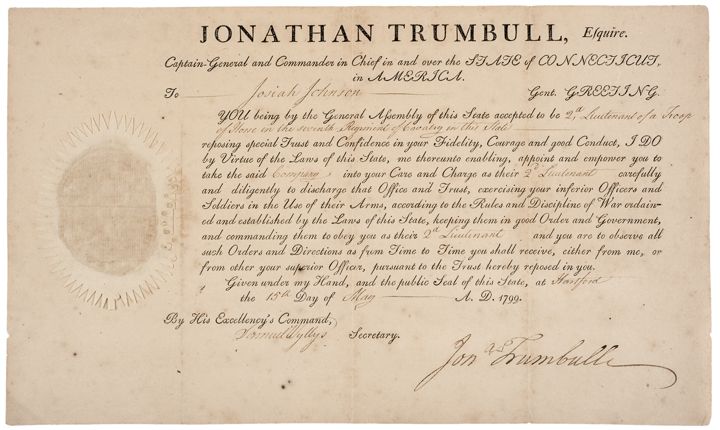 JONATHAN TRUMBULL, Esquire.
Captain-General and Commander in Chief in and over the STATE of CONNECTICUT,
in AMERICA.
To Josiah Johnson Gent. GREETING.
YOU being by the General Assembly of this State accepted to be 2d Lieutenant of a Troop
of Horse in the seventh Regiment of Cavalry in this State
reposing special Trust and Confidence in your Fidelity, Courage and good Conduct, I DO
by Virtue of the Laws of this State, me thereunto enabling, appoint and empower you to
take the said Company into your Care and Charge as their 2d Lieutenant carefully
and diligently to discharge that Office and Trust, exercising your inferior Officers and
Soldiers in the Use of their Arms, according to the Rules and Discipline of War ordain-
ed and established by the Laws of this State, keeping them in good Order and Government,
and commanding them to obey you as their 2d Lieutenant and you are to observe all
such Orders and Directions as from Time to Time you shall receive, either from me, or
from other your superior Officer, pursuant to the Trust hereby reposed in you.
Given under my Hand, and the public Seal of this State, at Hartford
the 15th Day of May A. D. 1799.
By His Excellency's Command,
Samuel Wyllys Secretary.
Jonth Trumbull